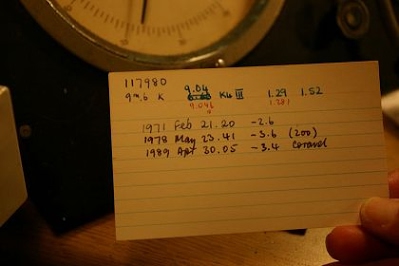 117980
9m.6 K 9.04 K4 III 1.29 1.52
9.046 1.281
1971 Feb 21.20 -2.6
1978 May 23.41 -3.6 (200)
1989 Apr 30.05 -3.4 Coravel